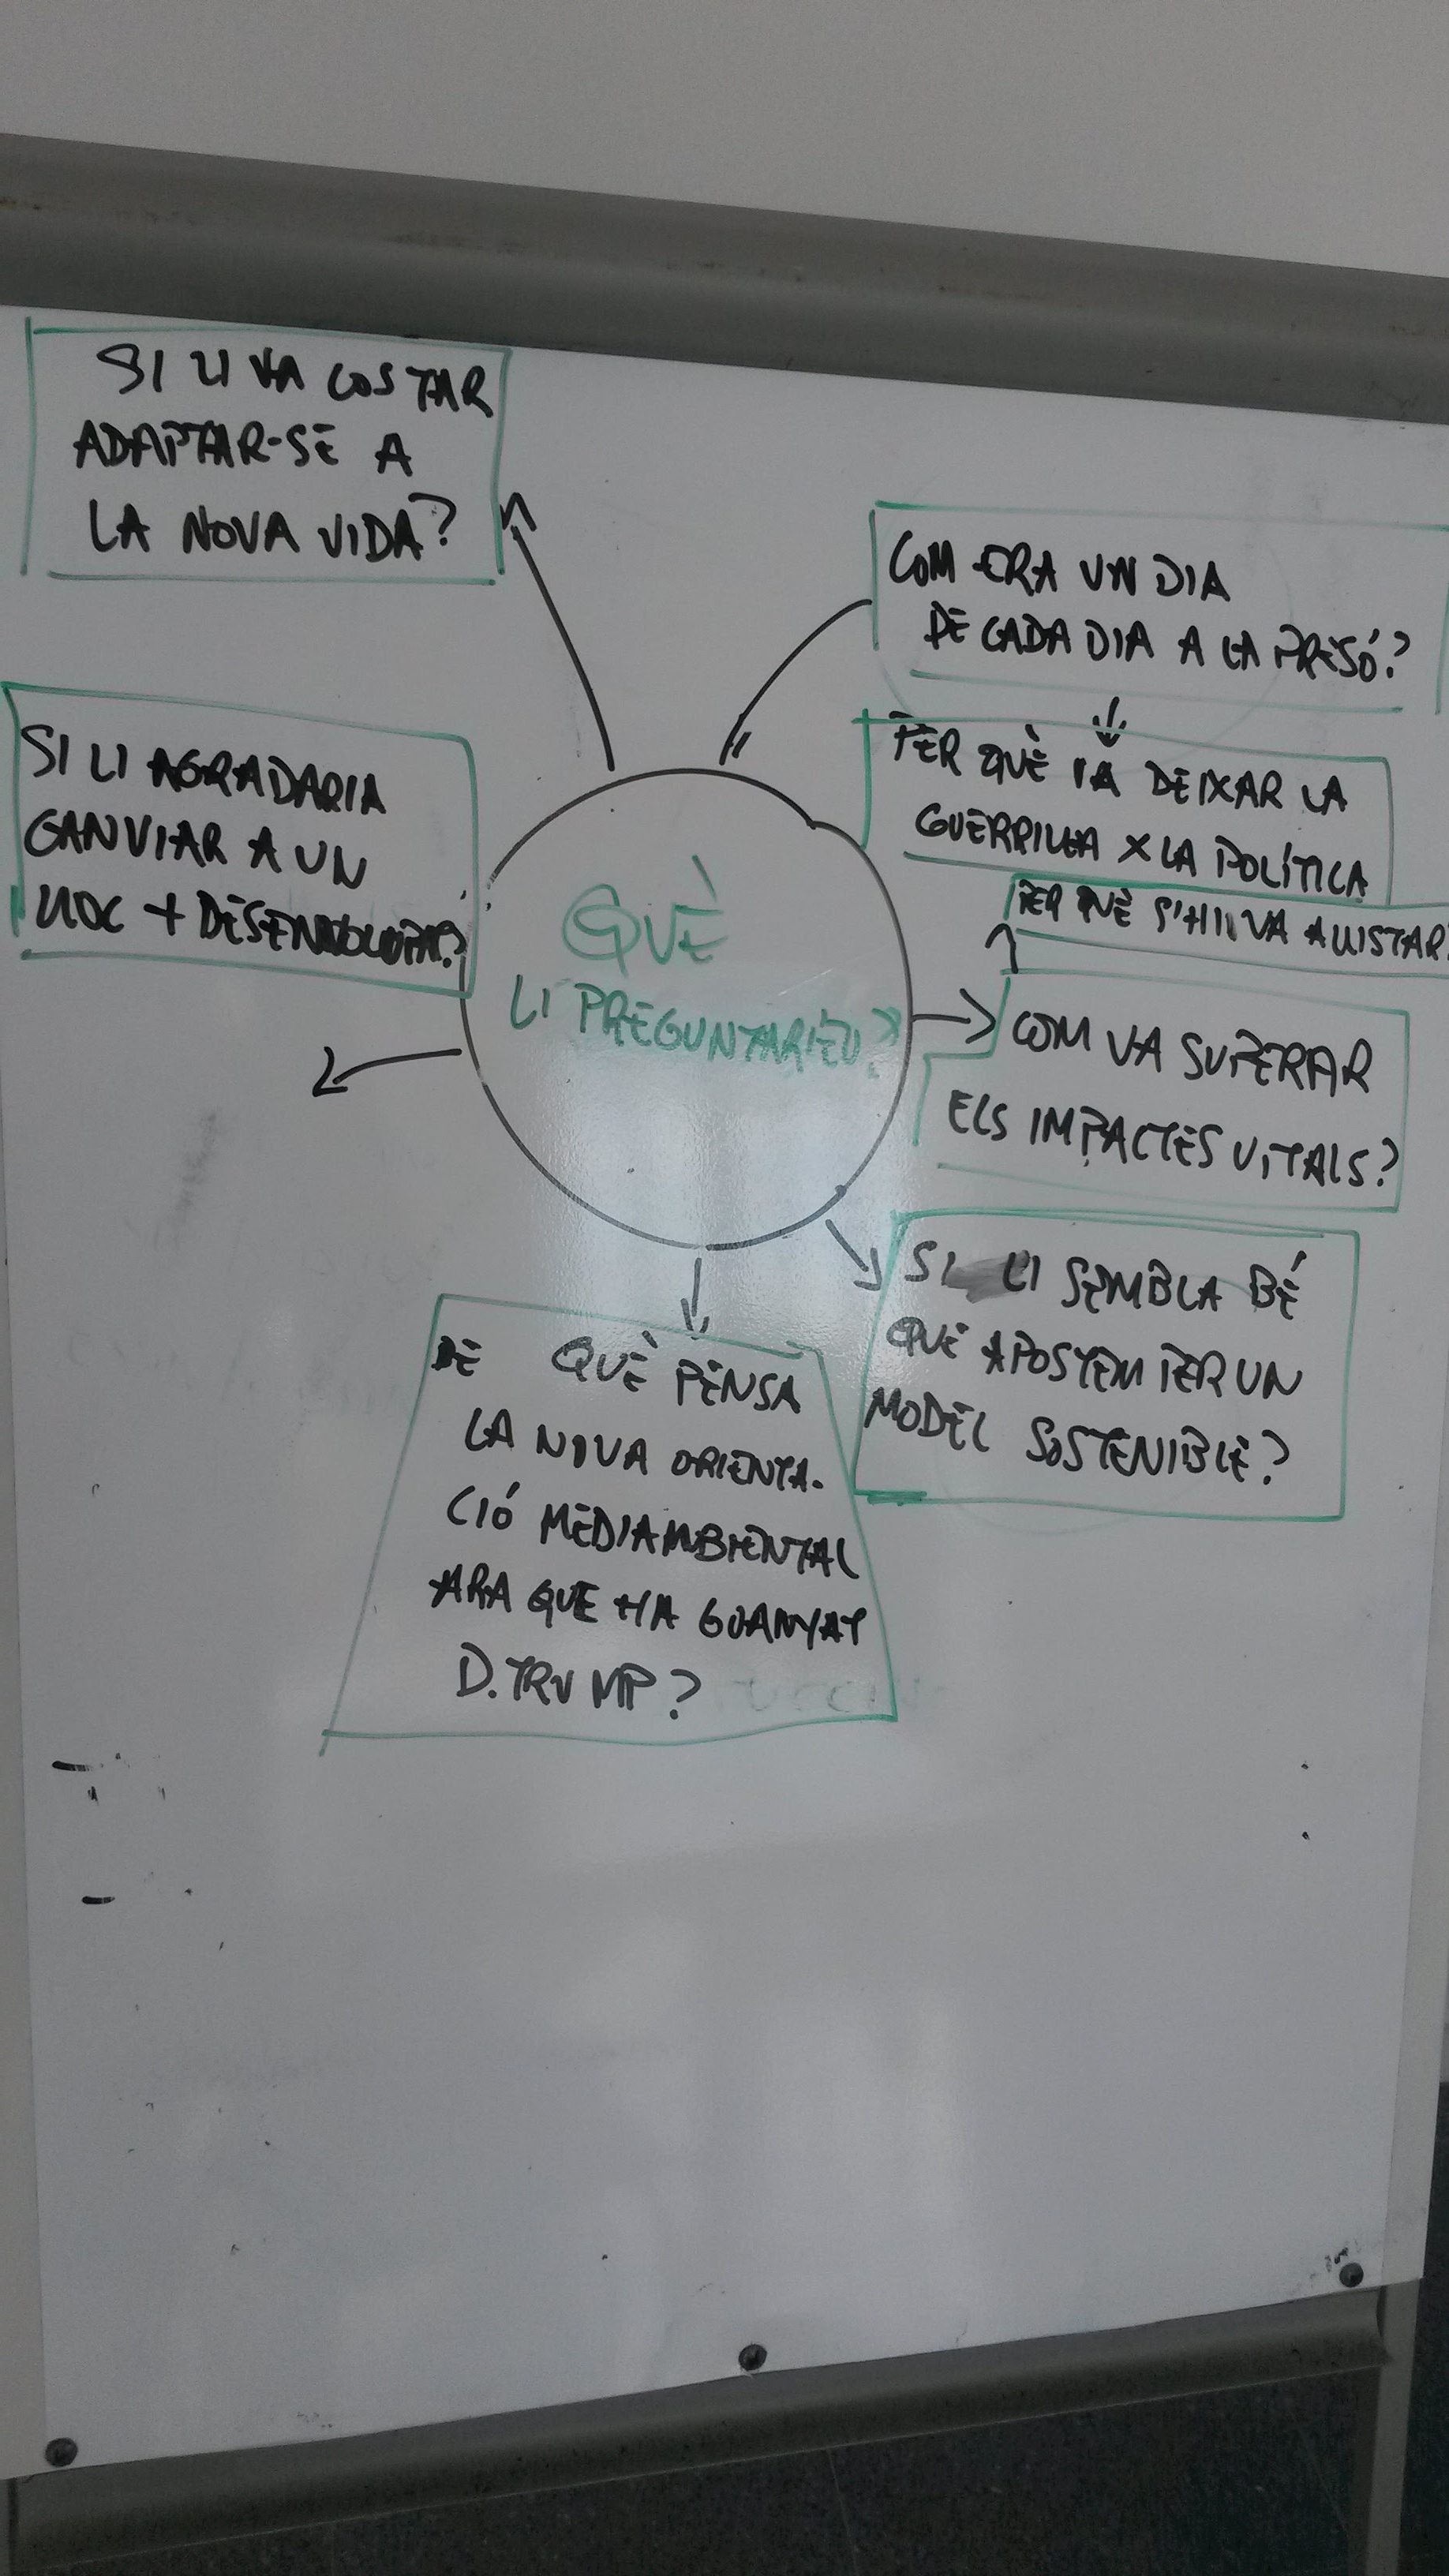 SI LI VA COSTAR
ADAPTAR-SE A
LA NOVA VIDA?
COM ERA UN DIA
DE CADA DIA A LA PRESÓ?
SI LI AGRADARIA
CANVIAR A UN
LLOC + DESENVOLUPAT?
PER QUÈ VA DEIXAR LA
GUERRILLA X LA POLÍTICA
PER QUÈ S'HI VA ALLISTAR?
QUÈ
LI PREGUNTARIEU?
COM VA SUPERAR
ELS IMPACTES VITALS?
SI LI SEMBLA BÉ
QUE APOSTEM PER UN
MODEL SOSTENIBLE?
DE QUÈ PENSA
LA NOVA ORIENTA-
CIÓ MEDIAMBIENTAL
ARA QUE HA GUANYAT
D. TRUMP?